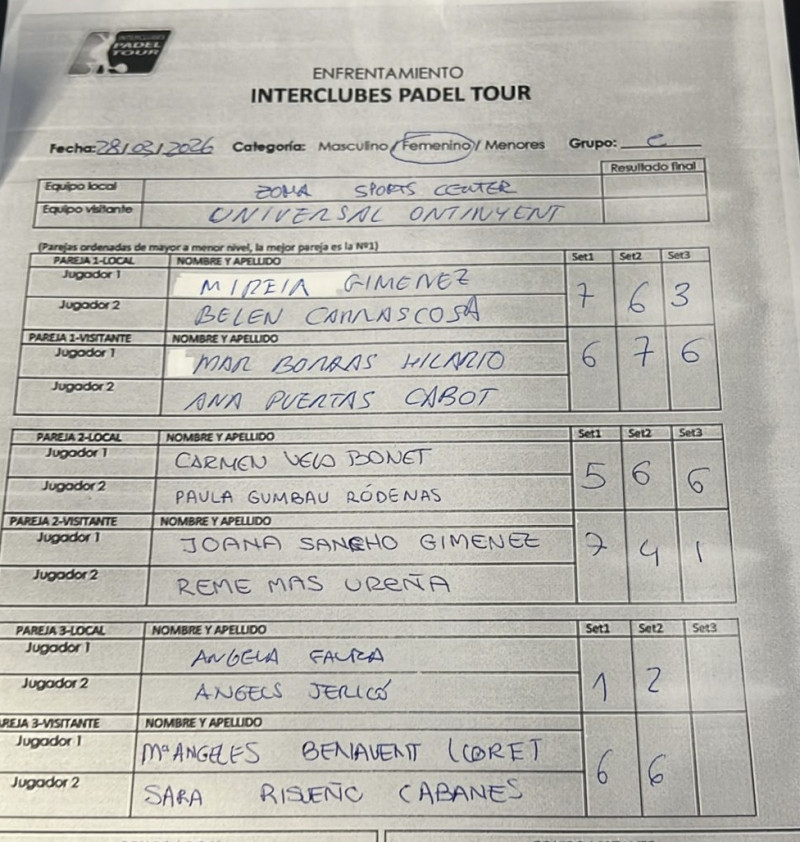 INTERCLUBES
PADEL
TOUR
ENFRENTAMIENTO
INTERCLUBES PADEL TOUR
Fecha: 28/03/2026 Categoría: Masculino / Femenino / Menores Grupo: C
Resultado final
Equipo local ZONA SPORTS CENTER
Equipo visitante UNIVERSAL ONTINYENT
(Parejas ordenadas de mayor a menor nivel, la mejor pareja es la Nº1)
PAREJA 1-LOCAL NOMBRE Y APELLIDO Set1 Set2 Set3
Jugador 1 MIREIA GIMENEZ
7 6 3
Jugador 2 BELEN CARRASCOSA
PAREJA 1-VISITANTE NOMBRE Y APELLIDO
Jugador 1 MAR BORRAS HILARIO
6 7 6
Jugador 2 ANA PUERTAS CABOT
PAREJA 2-LOCAL NOMBRE Y APELLIDO Set1 Set2 Set3
Jugador 1 CARMEN VELO BONET
5 6 6
Jugador 2 PAULA GUMBAU RÓDENAS
PAREJA 2-VISITANTE NOMBRE Y APELLIDO
Jugador 1 JOANA SANCHO GIMENEZ
7 4 1
Jugador 2 REME MAS UREÑA
PAREJA 3-LOCAL NOMBRE Y APELLIDO Set1 Set2 Set3
Jugador 1 ANGELA FAURA
1 2
Jugador 2 ANGELS JERICÓ
AREJA 3-VISITANTE NOMBRE Y APELLIDO
Jugador 1 Mª ANGELES BENAVENT LLORET
6 6
Jugador 2 SARA RISUEÑO CABANES